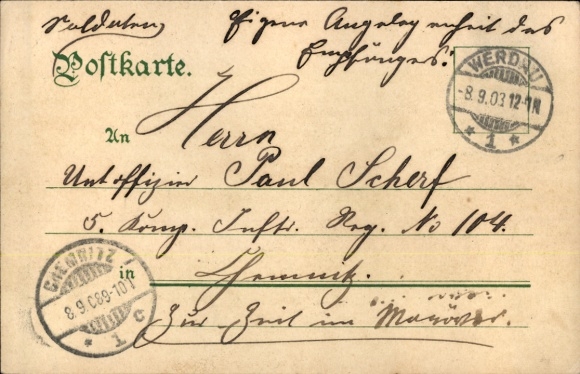 Soldaten Eigene Angelegenheit des
Empfängers.
Postkarte.
WERDAU
-8.9.03 12-1N
* 1 *
An Herrn
Untoffizier Paul Scherf
5. Komp. Inftr. Reg. No 104.
CHEMNITZ
8.9.03 9-10
* 1 C
in Chemnitz.
Zur Zeit im Manöver.